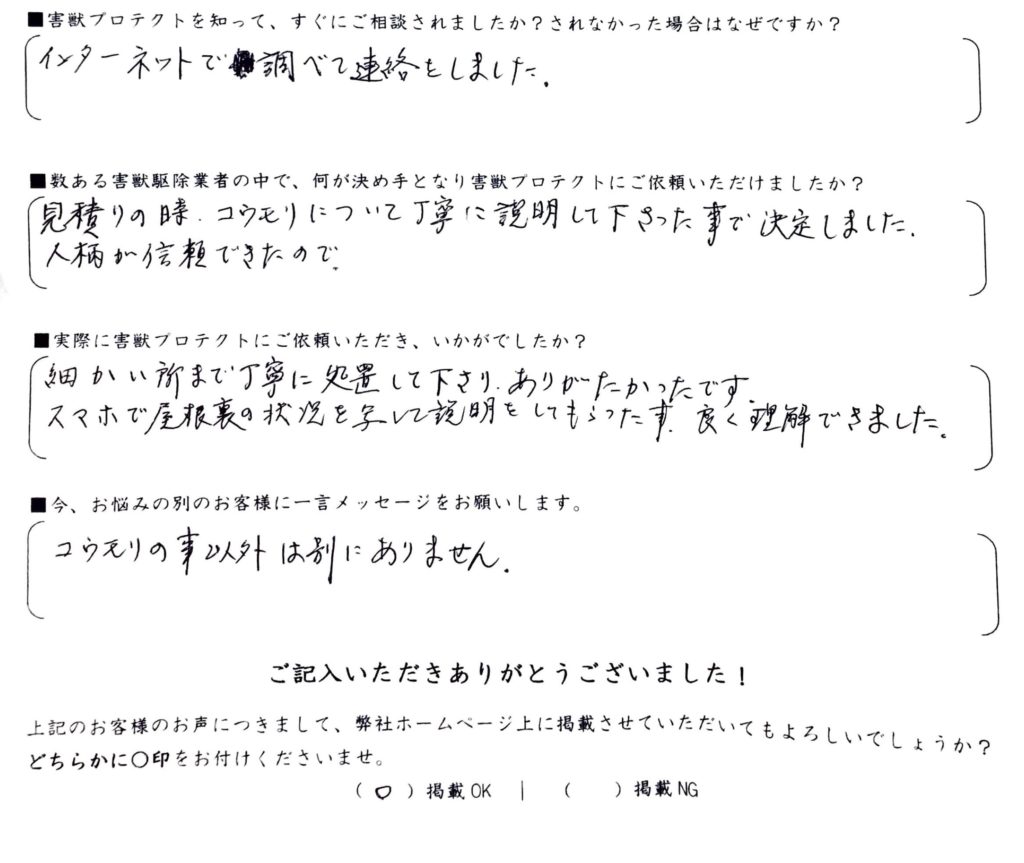 ■害獣プロテクトを知って、すぐにご相談されましたか？されなかった場合はなぜですか？
インターネットで調べて連絡をしました.
■数ある害獣駆除業者の中で、何が決め手となり害獣プロテクトにご依頼いただけましたか？
見積りの時.コウモリについて丁寧に説明して下さった事で決定しました.
人柄が信頼できたので.
■実際に害獣プロテクトにご依頼いただき、いかがでしたか？
細かい所まで丁寧に処置して下さり.ありがたかったです.
スマホで屋根裏の状況を写して説明をしてもらった事.良く理解できました.
■今、お悩みの別のお客様に一言メッセージをお願いします。
コウモリの事以外は別にありません.
ご記入いただきありがとうございました！
上記のお客様のお声につきまして、弊社ホームページ上に掲載させていただいてもよろしいでしょうか？
どちらかに〇印をお付けくださいませ。
（ ○ ）掲載OK ｜ （ ）掲載NG